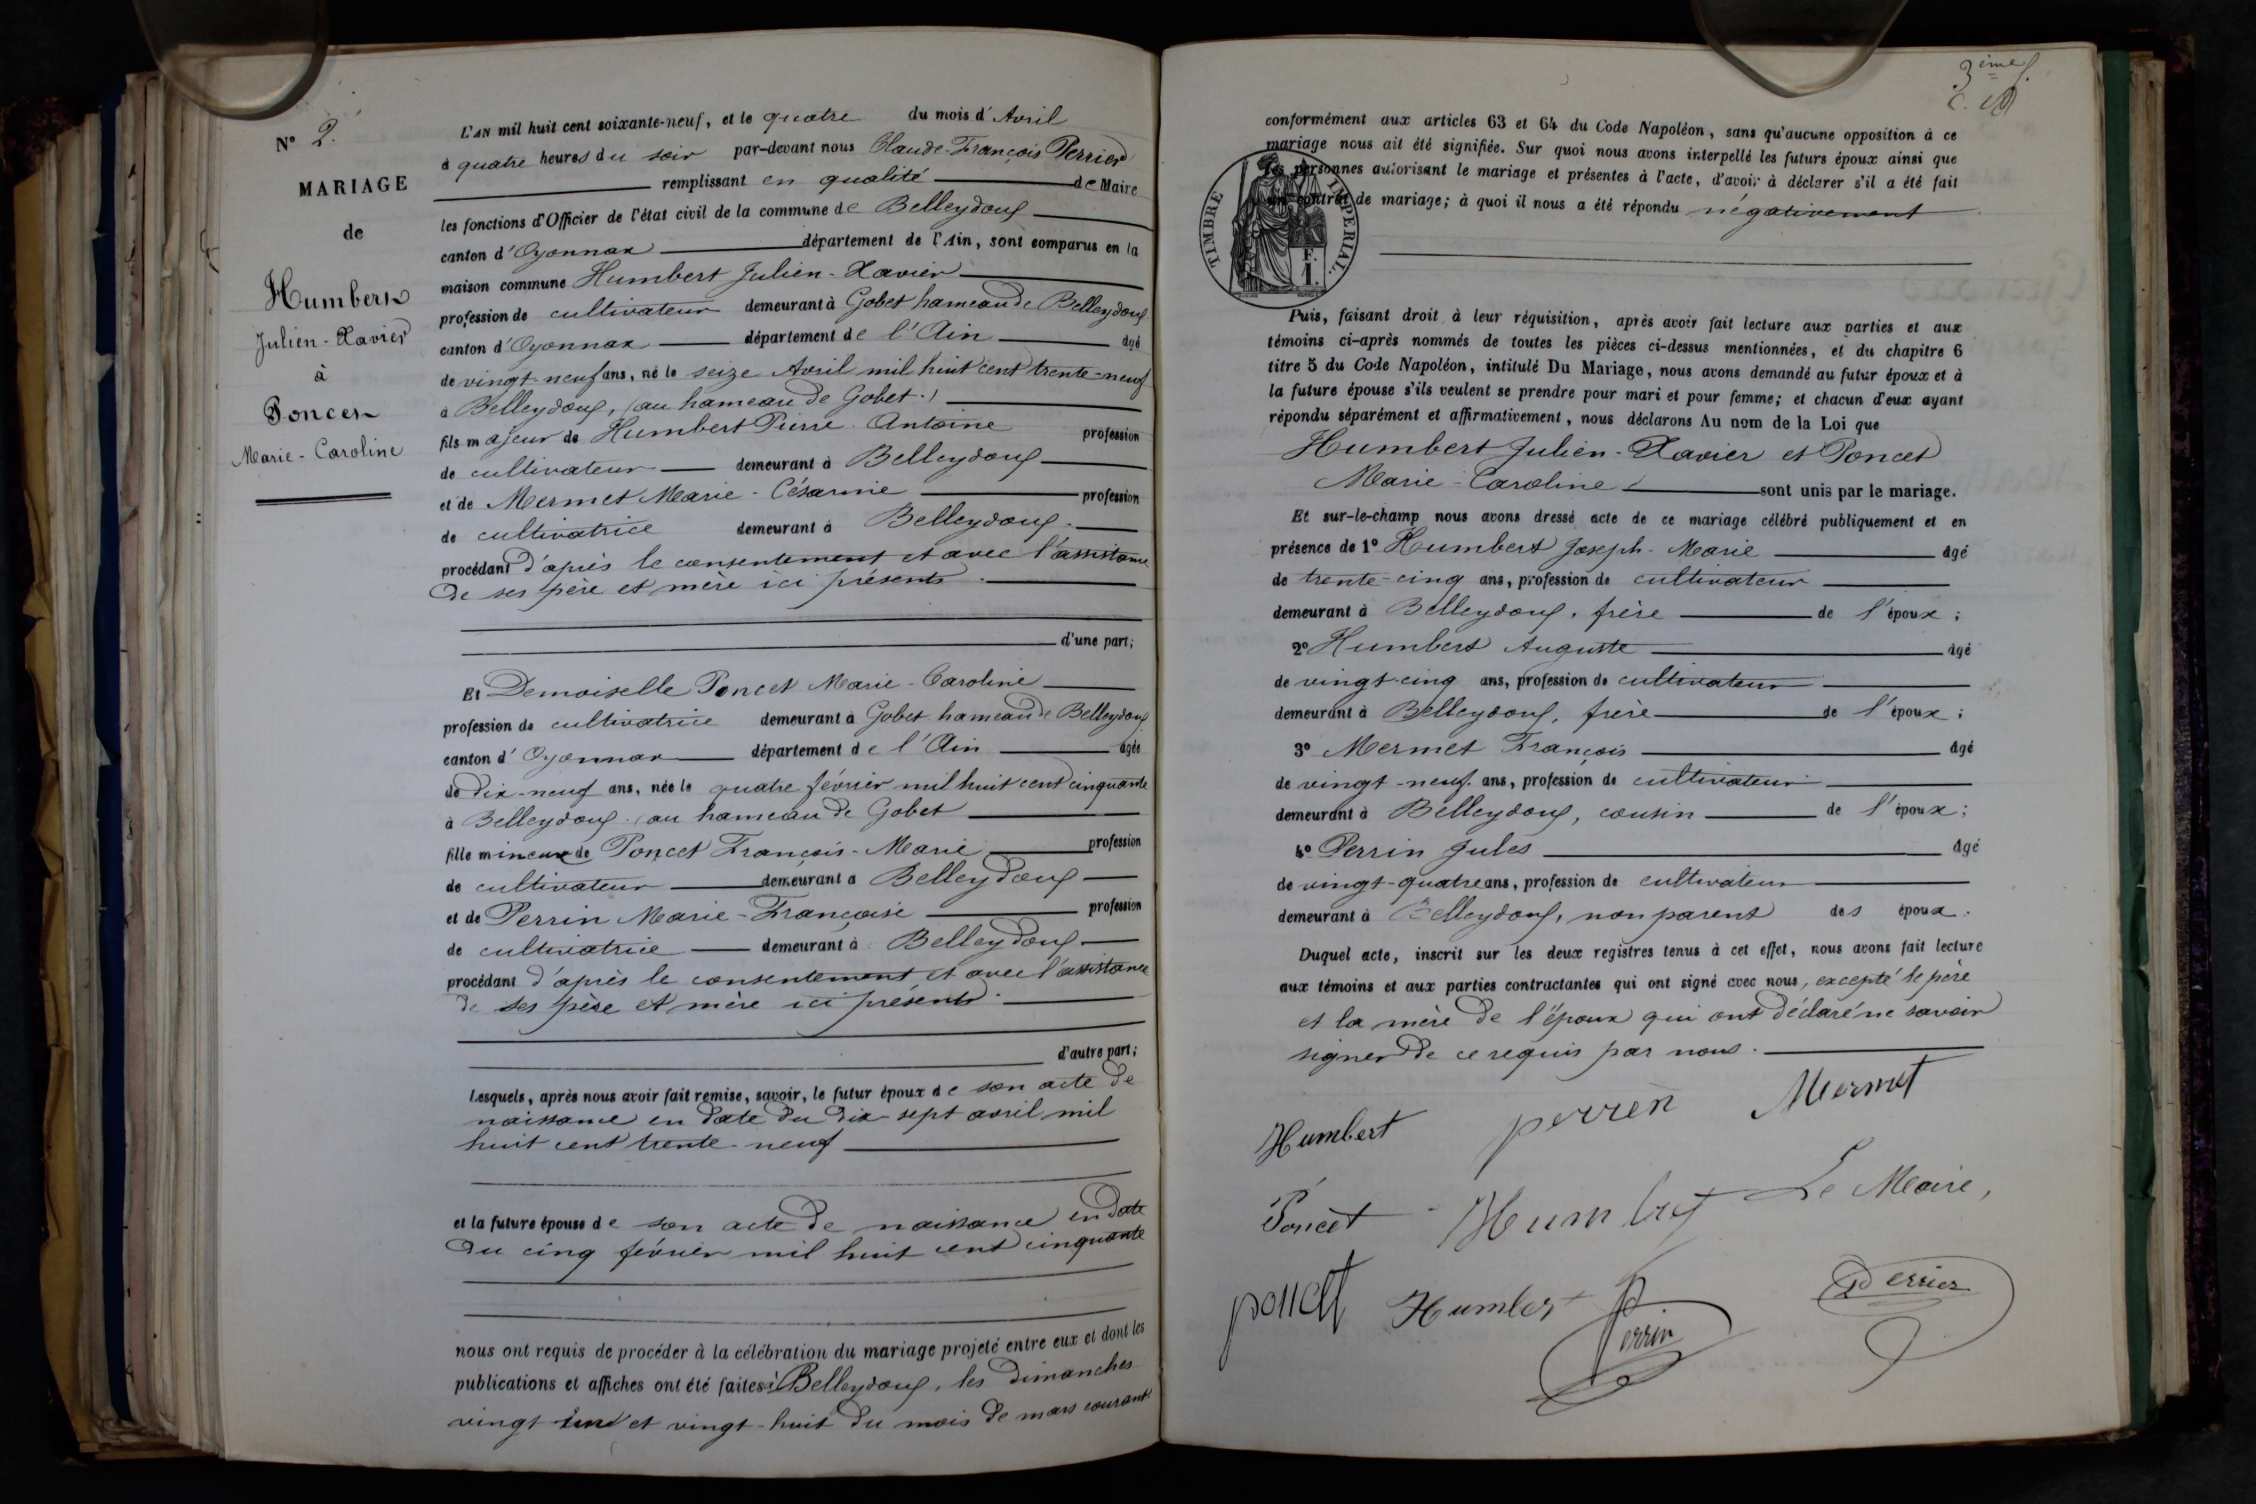 N° 2.
MARIAGE
de
Humbert
Julien-Xavier
à
Poncet
Marie-Caroline
L'AN mil huit cent soixante-neuf, et le quatre du mois d'Avril
à quatre heures du soir par-devant nous Claude-François Perrier
remplissant en qualité de Maire
les fonctions d'Officier de l'état civil de la commune de Belleydoux
canton d'Oyonnax département de l'Ain, sont comparus en la
maison commune Humbert Julien-Xavier
profession de cultivateur demeurant à Gobet hameau de Belleydoux
canton d'Oyonnax département de l'Ain âgé
de vingt-neuf ans, né le seize Avril mil huit cent trente-neuf
à Belleydoux, (au hameau de Gobet.)
fils majeur de Humbert Pierre Antoine profession
de cultivateur demeurant à Belleydoux
et de Mermet Marie-Césarine profession
de cultivatrice demeurant à Belleydoux.
procédant d'après le consentement et avec l'assistance
de ses père et mère ici présents.
d'une part;
Et Demoiselle Poncet Marie-Caroline
profession de cultivatrice demeurant à Gobet hameau de Belleydoux
canton d'Oyonnax département de l'Ain âgée
de dix-neuf ans, née le quatre février mil huit cent cinquante
à Belleydoux (au hameau de Gobet
fille mineure de Poncet François-Marie profession
de cultivateur demeurant à Belleydoux
et de Perrin Marie-Françoise profession
de cultivatrice demeurant à Belleydoux
procédant d'après le consentement et avec l'assistance
de ses père et mère ici présents.
d'autre part;
Lesquels, après nous avoir fait remise, savoir, le futur époux de son acte de
naissance en date du dix-sept avril mil
huit cent trente-neuf
et la future épouse de son acte de naissance en date
du cinq février mil huit cent cinquante
nous ont requis de procéder à la célébration du mariage projeté entre eux et dont les
publications et affiches ont été faites à Belleydoux, les dimanches
vingt-un et vingt-huit du mois de mars courant.
3ème f.
conformément aux articles 63 et 64 du Code Napoléon, sans qu'aucune opposition à ce
mariage nous ait été signifiée. Sur quoi nous avons interpellé les futurs époux ainsi que
les personnes autorisant le mariage et présentes à l'acte, d'avoir à déclarer s'il a été fait
un contrat de mariage; à quoi il nous a été répondu négativement
TIMBRE IMPERIAL.
F.
1.
Puis, faisant droit à leur réquisition, après avoir fait lecture aux parties et aux
témoins ci-après nommés de toutes les pièces ci-dessus mentionnées, et du chapitre 6
titre 5 du Code Napoléon, intitulé Du Mariage, nous avons demandé au futur époux et à
la future épouse s'ils veulent se prendre pour mari et pour femme; et chacun d'eux ayant
répondu séparément et affirmativement, nous déclarons Au nom de la Loi que
Humbert Julien-Xavier et Poncet
Marie-Caroline sont unis par le mariage.
Et sur-le-champ nous avons dressé acte de ce mariage célébré publiquement et en
présence de 1° Humbert Joseph-Marie âgé
de trente-cinq ans, profession de cultivateur
demeurant à Belleydoux, frère de l'époux;
2° Humbert Auguste âgé
de vingt-cinq ans, profession de cultivateur
demeurant à Belleydoux, frère de l'époux;
3° Mermet François âgé
de vingt-neuf ans, profession de cultivateur
demeurant à Belleydoux, cousin de l'époux;
4° Perrin Jules âgé
de vingt-quatre ans, profession de cultivateur
demeurant à Belleydoux, non parent des époux.
Duquel acte, inscrit sur les deux registres tenus à cet effet, nous avons fait lecture
aux témoins et aux parties contractantes qui ont signé avec nous, excepté le père
et la mère de l'époux qui ont déclaré ne savoir
signer de ce requis par nous.
Humbert perrin Mermet
Poncet Humbert Le Maire,
poncet Humbert Perrin Perrier